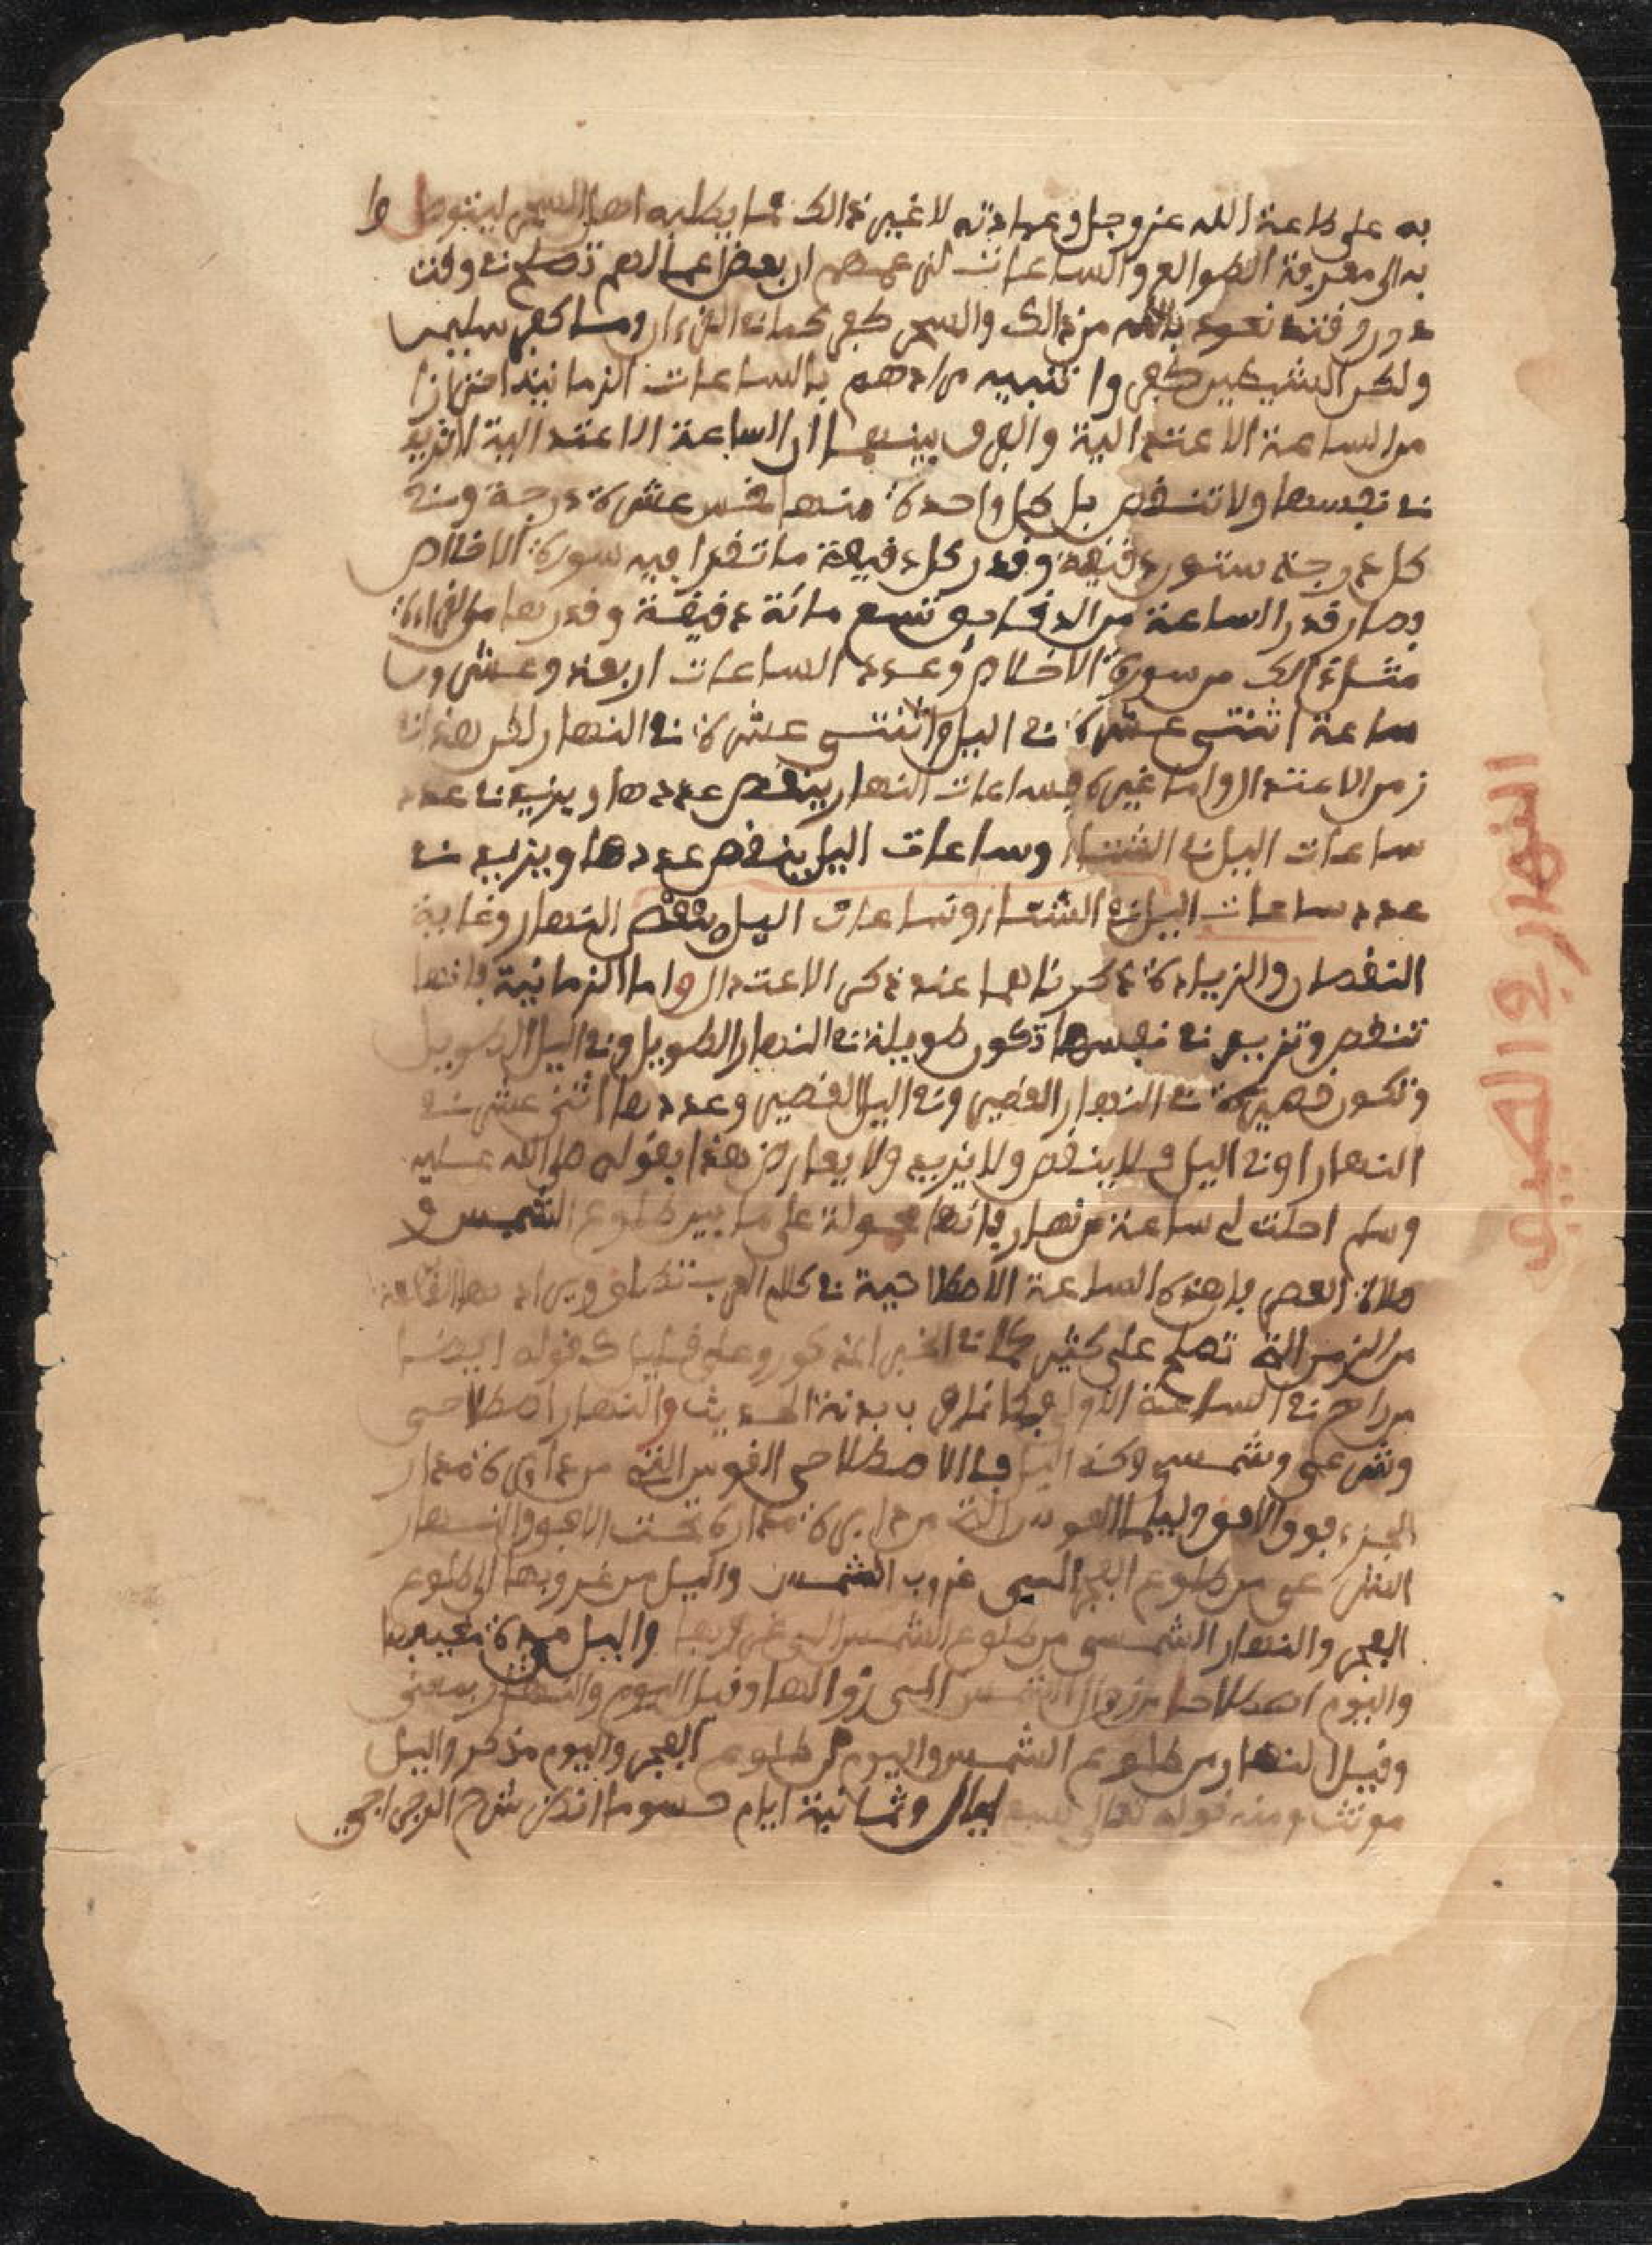 به على طاعة الله عز وجل وعبادته لا غير ذالك مما يطلبه اهل السحر ليتوصلوا
به الى معرفة الطوالع والساعات لزعمهم ان بعض اعمالهم تصلح في وقت
دون وقت نعوذ بالله من ذالك والسحر كفر كما في القرءان وما كفر سليمن
ولكن الشيطين كفروا تنبيه مرادهم بالساعات الزمانية احترازا
من الساعة الاعتدالية والفرق بينهما ان الساعة الاعتدالية لا تزيد
في نفسها ولا تنقص بل كل واحدة منها خمس عشرة درجة وفي
كل درجة ستون دقيقة وقدر كل دقيقة ما تقرا فيه سورة الاخلاص
وصار قدر الساعة من الدقايق تسع مائة دقيقة وقدرها من القراءة
مثل ذالك من سورة الاخلاص وعدد الساعات اربعة وعشرون
ساعة اثنتى عشرة في اليل واثنتى عشرة في النهار لكن هذا في
زمن الاعتدال واما غيره فساعات النهار ينقص عددها ويزيد في عدد
ساعات اليل في الشتاء وساعات اليل ينقص عددها ويزيد في
عدد ساعات اليل في الشتاء وساعات اليل النهار وغاية
النقصان والزيادة ذكرناهما عند ذكر الاعتدال واما الزمانية فانها
تنقص وتزيد في نفسها تكون طويلة في النهار الطويل وفي اليل الطويل
وتكون قصيرة في النهار القصير وفي اليل القصير وعددها اثنى عشر في
النهار او في اليل فلا ينقص ولا يزيد ولا يعارض هذا بقوله صلى الله عليه
وسلم احلت لي ساعة من نهار فانها محمولة على ما بين طلوع الشمس و
صلاة العصر فهذه الساعة الاصطلاحية في كلام العرب تطلق ويراد بها القطعة
من الزمن التي تصلح على كثير كما في الخبر المذكور وعلى قليل كقوله ايضا
من راح في الساعة الاولى فكانما قرب بدنة الحديث والنهار اصطلاحي
وشرعي وشمسي وكذا اليل فالاصطلاحي القوس التي من دايرة مدار
الجزء فوق الافق وليلها القوس التي من دايرة مداره تحت الافق والنهار
الشرعي من طلوع الفجر الى غروب الشمس واليل من غروبها الى طلوع
الفجر والنهار الشمسي من طلوع الشمس الى غروبها واليل مدة مغيبها
واليوم اصطلاحا من زوال الشمس الى زوالها وقيل اليوم والنهار بمعنى
وقيل النهار من طلوع الشمس واليوم من طلوع الفجر واليوم مذكر واليل
مونث ومنه قوله تعالى سبع ليال وثمانية ايام حسوما انظر شرح
النهار واليوم